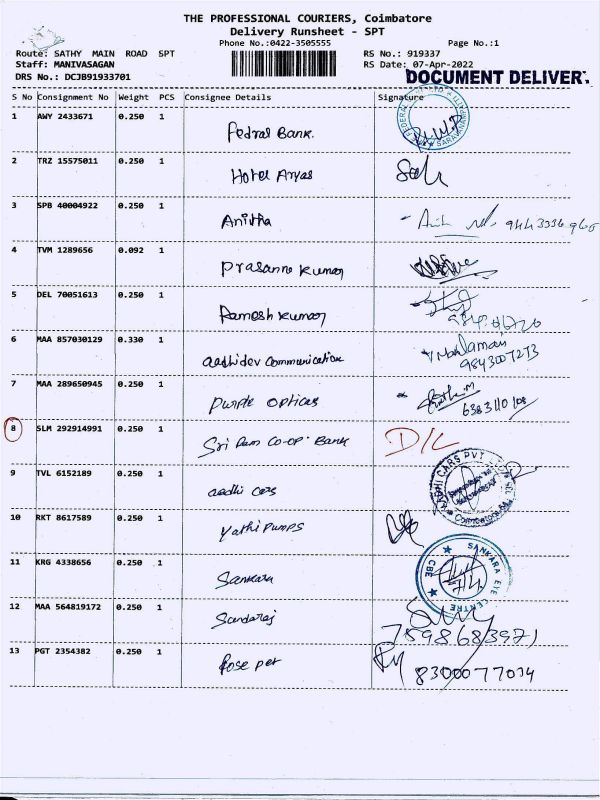 THE PROFESSIONAL COURIERS, Coimbatore
Delivery Runsheet - SPT
Phone No.:0422-3505555 Page No.:1
Route: SATHY MAIN ROAD SPT RS No.: 919337
Staff: MANIVASAGAN RS Date: 07-Apr-2022
DRS No.: DCJB91933701 DOCUMENT DELIVER
S No Consignment No Weight PCS Consignee Details Signature
1 AWY 2433671 0.250 1 Fedral Bank.
2 TRZ 15575011 0.250 1 Hotel Aryas
3 SPB 40004922 0.250 1 Anitha 9443336960
4 TVM 1289656 0.092 1 Prasanna Kumar
5 DEL 70051613 0.250 1 Ramesh Kumar
6 MAA 857030129 0.330 1 aadhidev Communication
9843007273
7 MAA 289650945 0.250 1 Purple Opticas 6383110108
8 SLM 292914991 0.250 1 Sri Ram Co-op. Bank D/L
9 TVL 6152189 0.250 1 aadhi cars AADHI CARS PVT Coimbatore
10 RKT 8617589 0.250 1 Yathi Pumps
11 KRG 4338656 0.250 1 Sankara SANKARA EYE CENTRE CBE
12 MAA 564819172 0.250 1 Sundaraj
7598683971
13 PGT 2354382 0.250 1 Rose pet 8300077034